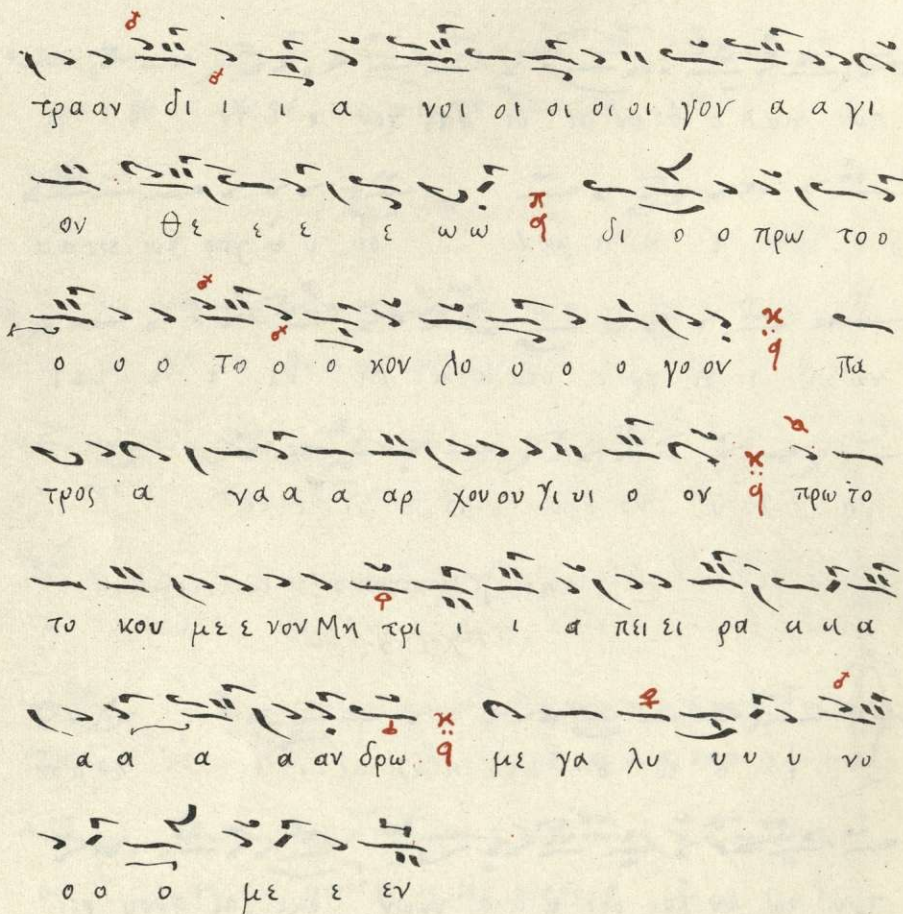 τρα αν δι ι ι α νοι οι οι οι οι γον α α γι
ον Θε ε ε ε ω ω δι ο ο πρω το ο
ο ο ο το ο ο κον λο ο ο ο γο ον πα
τρος α να α α αρ χου ου γι υι ο ον πρω το
το κου με ε νον Μη τρι ι ι α πει ει ρα α α α
α α α α αν δρω με γα λυ υ υ υ νο
ο ο ο με ε εν